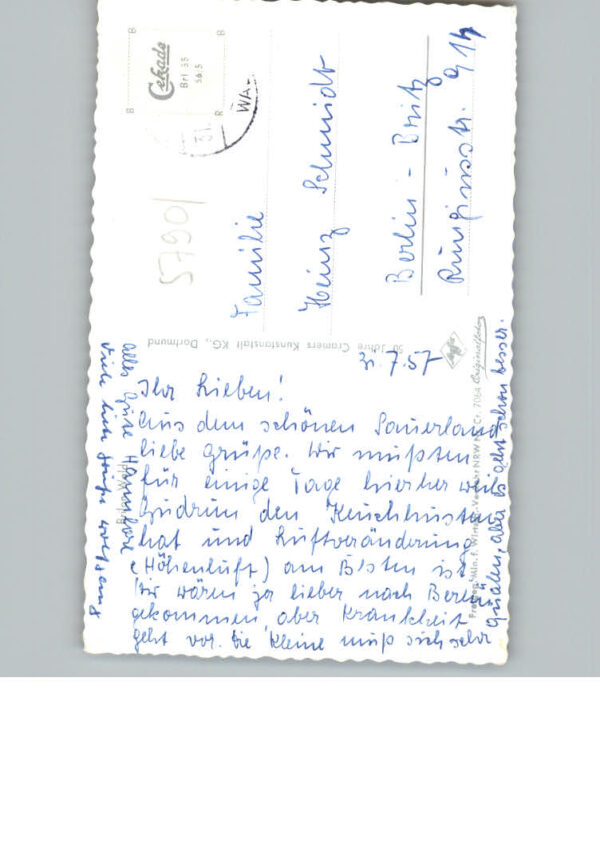 31.7.57
Ihr Lieben!
Aus dem schönen Sauerland
liebe Grüße. Wir mußten
für einige Tage hierher weil
Gudrun den Keuchhusten
hat und Luftveränderung
(Höhenluft) am Besten ist.
Wir wären ja lieber nach Berlin
gekommen, aber Krankheit
geht vor. Die Kleine muß sich sehr
quälen, aber es geht schon besser.
Alles Gute Hannelore
Viele liebe Grüße Wolfgang
Familie
Heinz Schmidt
Berlin-Britz
Rungiusstr.
Cekade
Brl 35
5790/
50 Jahre Cramers Kunstanstalt KG., Dortmund
Agfa
Originalfoto